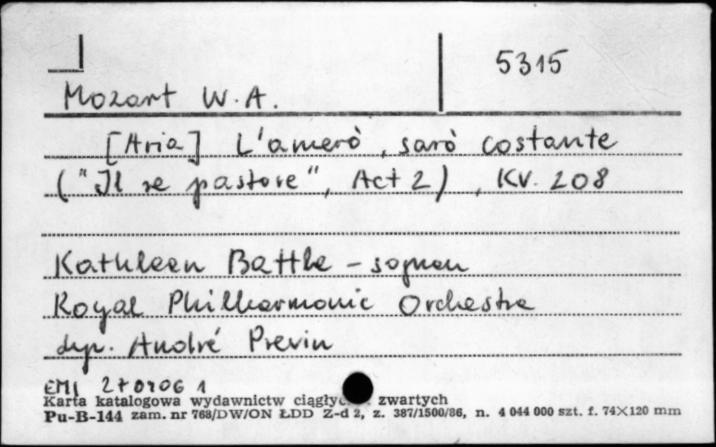 5315
Mozart W.A.
[Aria] L'amerò, sarò costante
("Il re pastore", Act 2), KV. 208
Kathleen Battle - sopran
Royal Philharmonic Orchestra
dyr. André Previn
EMI 270406 1
Karta katalogowa wydawnictw ciągłyc zwartych
Pu-B-144 zam. nr 768/DW/ON ŁDD Z-d 2, z. 387/1500/86, n. 4 044 000 szt. f. 74×120 mm